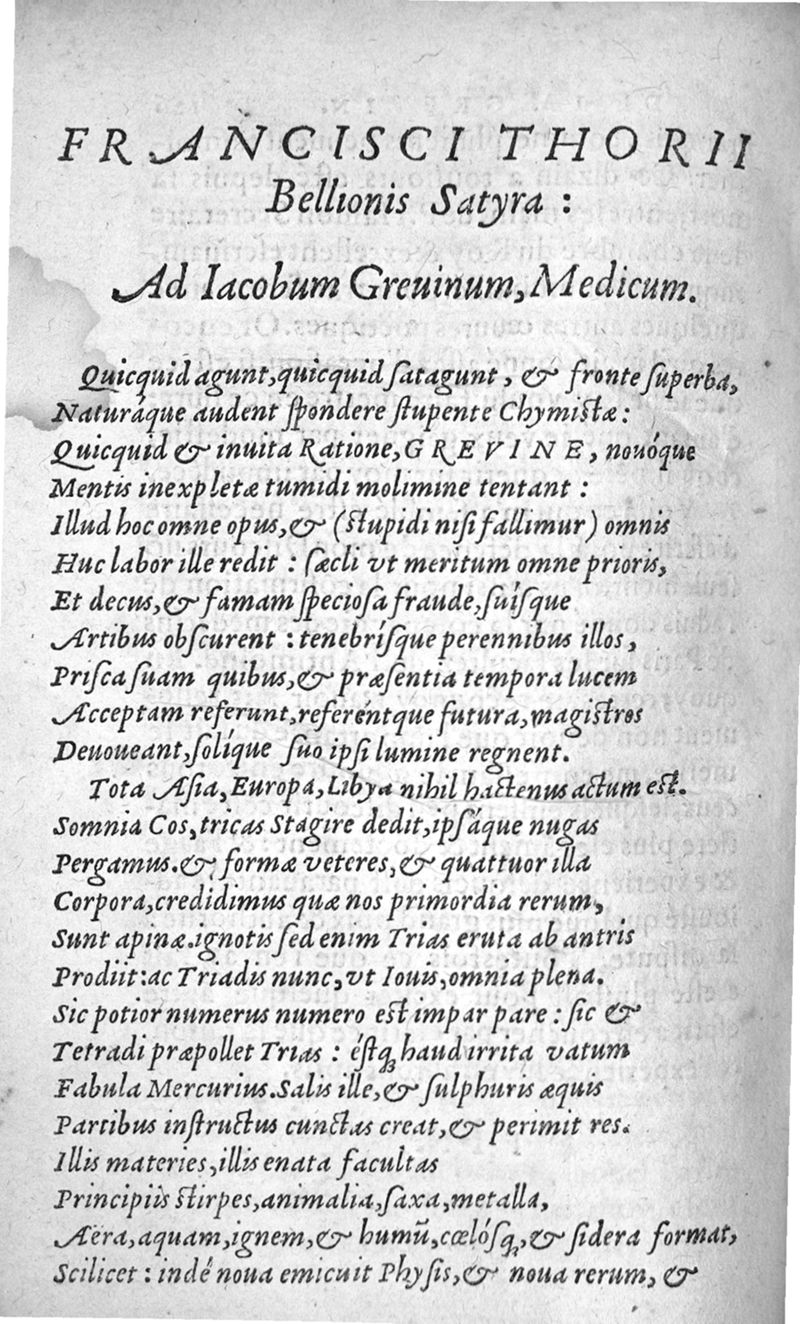 FRANCISCI THORII
Bellionis Satyra :
Ad Iacobum Greuinum, Medicum.
Quicquid agunt, quicquid ſatagunt, & fronte ſuperba,
Naturáque audent ſpondere ſtupente Chymiſtæ:
Quicquid & inuita Ratione, GREVINE, nouóque
Mentis inexpletæ tumidi molimine tentant :
Illud hoc omne opus, & (ſtupidi niſi fallimur) omnis
Huc labor ille redit : ſæcli vt meritum omne prioris,
Et decus, & famam ſpecioſa fraude, ſuíſque
Artibus obſcurent : tenebríſque perennibus illos,
Priſca ſuam quibus, & præſentia tempora lucem
Acceptam referunt, referéntque futura, magiſtros
Deuoueant, ſolíque ſuo ipſi lumine regnent.
Tota Aſia, Europa, Libya nihil hactenus actum eſt.
Somnia Cos, tricas Stagire dedit, ipſáque nugas
Pergamus. & formæ veteres, & quattuor illa
Corpora, credidimus quæ nos primordia rerum,
Sunt apinæ. ignotis ſed enim Trias eruta ab antris
Prodiit: ac Triadis nunc, vt Iouis, omnia plena.
Sic potior numerus numero eſt impar pare : ſic &
Tetradi præpollet Trias : éſtq; haud irrita vatum
Fabula Mercurius. Salis ille, & ſulphuris æquis
Partibus inſtructus cunctas creat, & perimit res.
Illis materies, illis enata facultas
Principiis ſtirpes, animalia, ſaxa, metalla,
Aëra, aquam, ignem, & humũ, cœlóſq;, & ſidera format,
Scilicet : indé noua emicuit Phyſis, & noua rerum, &